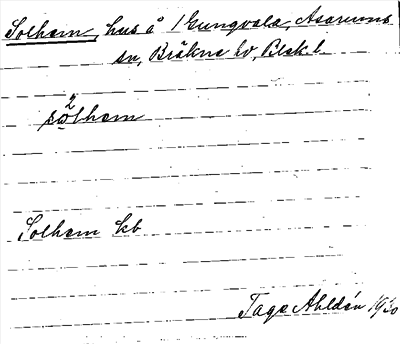 Solhem, hus å 1 Gungvala, Asarums
sn, Bräkne hd, Blek. l.
2
sωlhem
Solhem kb
Tage Ahldén 1930